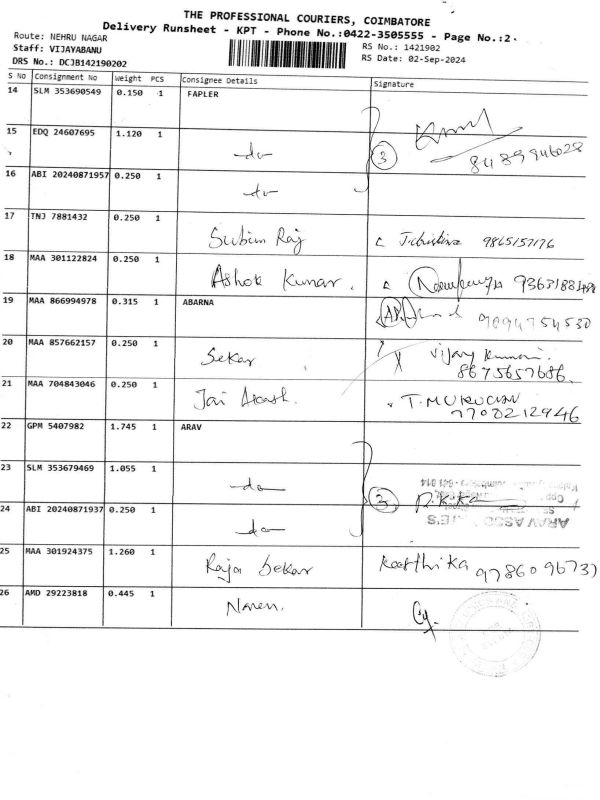 THE PROFESSIONAL COURIERS, COIMBATORE
Delivery Runsheet - KPT - Phone No.:0422-3505555 - Page No.:2.
Route: NEHRU NAGAR
RS No.: 1421902
Staff: VIJAYABANU
RS Date: 02-Sep-2024
DRS No.: DCJB142190202
S No Consignment No Weight PCS Consignee Details Signature
14 SLM 353690549 0.150 1 FAPLER
15 EDQ 24607695 1.120 1 -do- 3 8489946028
16 ABI 20240871957 0.250 1 -do-
17 TNJ 7881432 0.250 1 Subin Raj 9865157176
18 MAA 301122824 0.250 1 Ashok Kumar. 9363188488
19 MAA 866994978 0.315 1 ABARNA 9094754530
20 MAA 857662157 0.250 1 Sekar Vijay Kumari.
8675657686.
21 MAA 704843046 0.250 1 Jai Akash. T. MURUGAN
7708212946
22 GPM 5407982 1.745 1 ARAV
23 SLM 353679469 1.055 1 -do- 3
24 ABI 20240871937 0.250 1 -do- ARAV ASSO
25 MAA 301924375 1.260 1 Raja Sekar Karthika 9786096737
26 AMD 29223818 0.445 1 Naren.